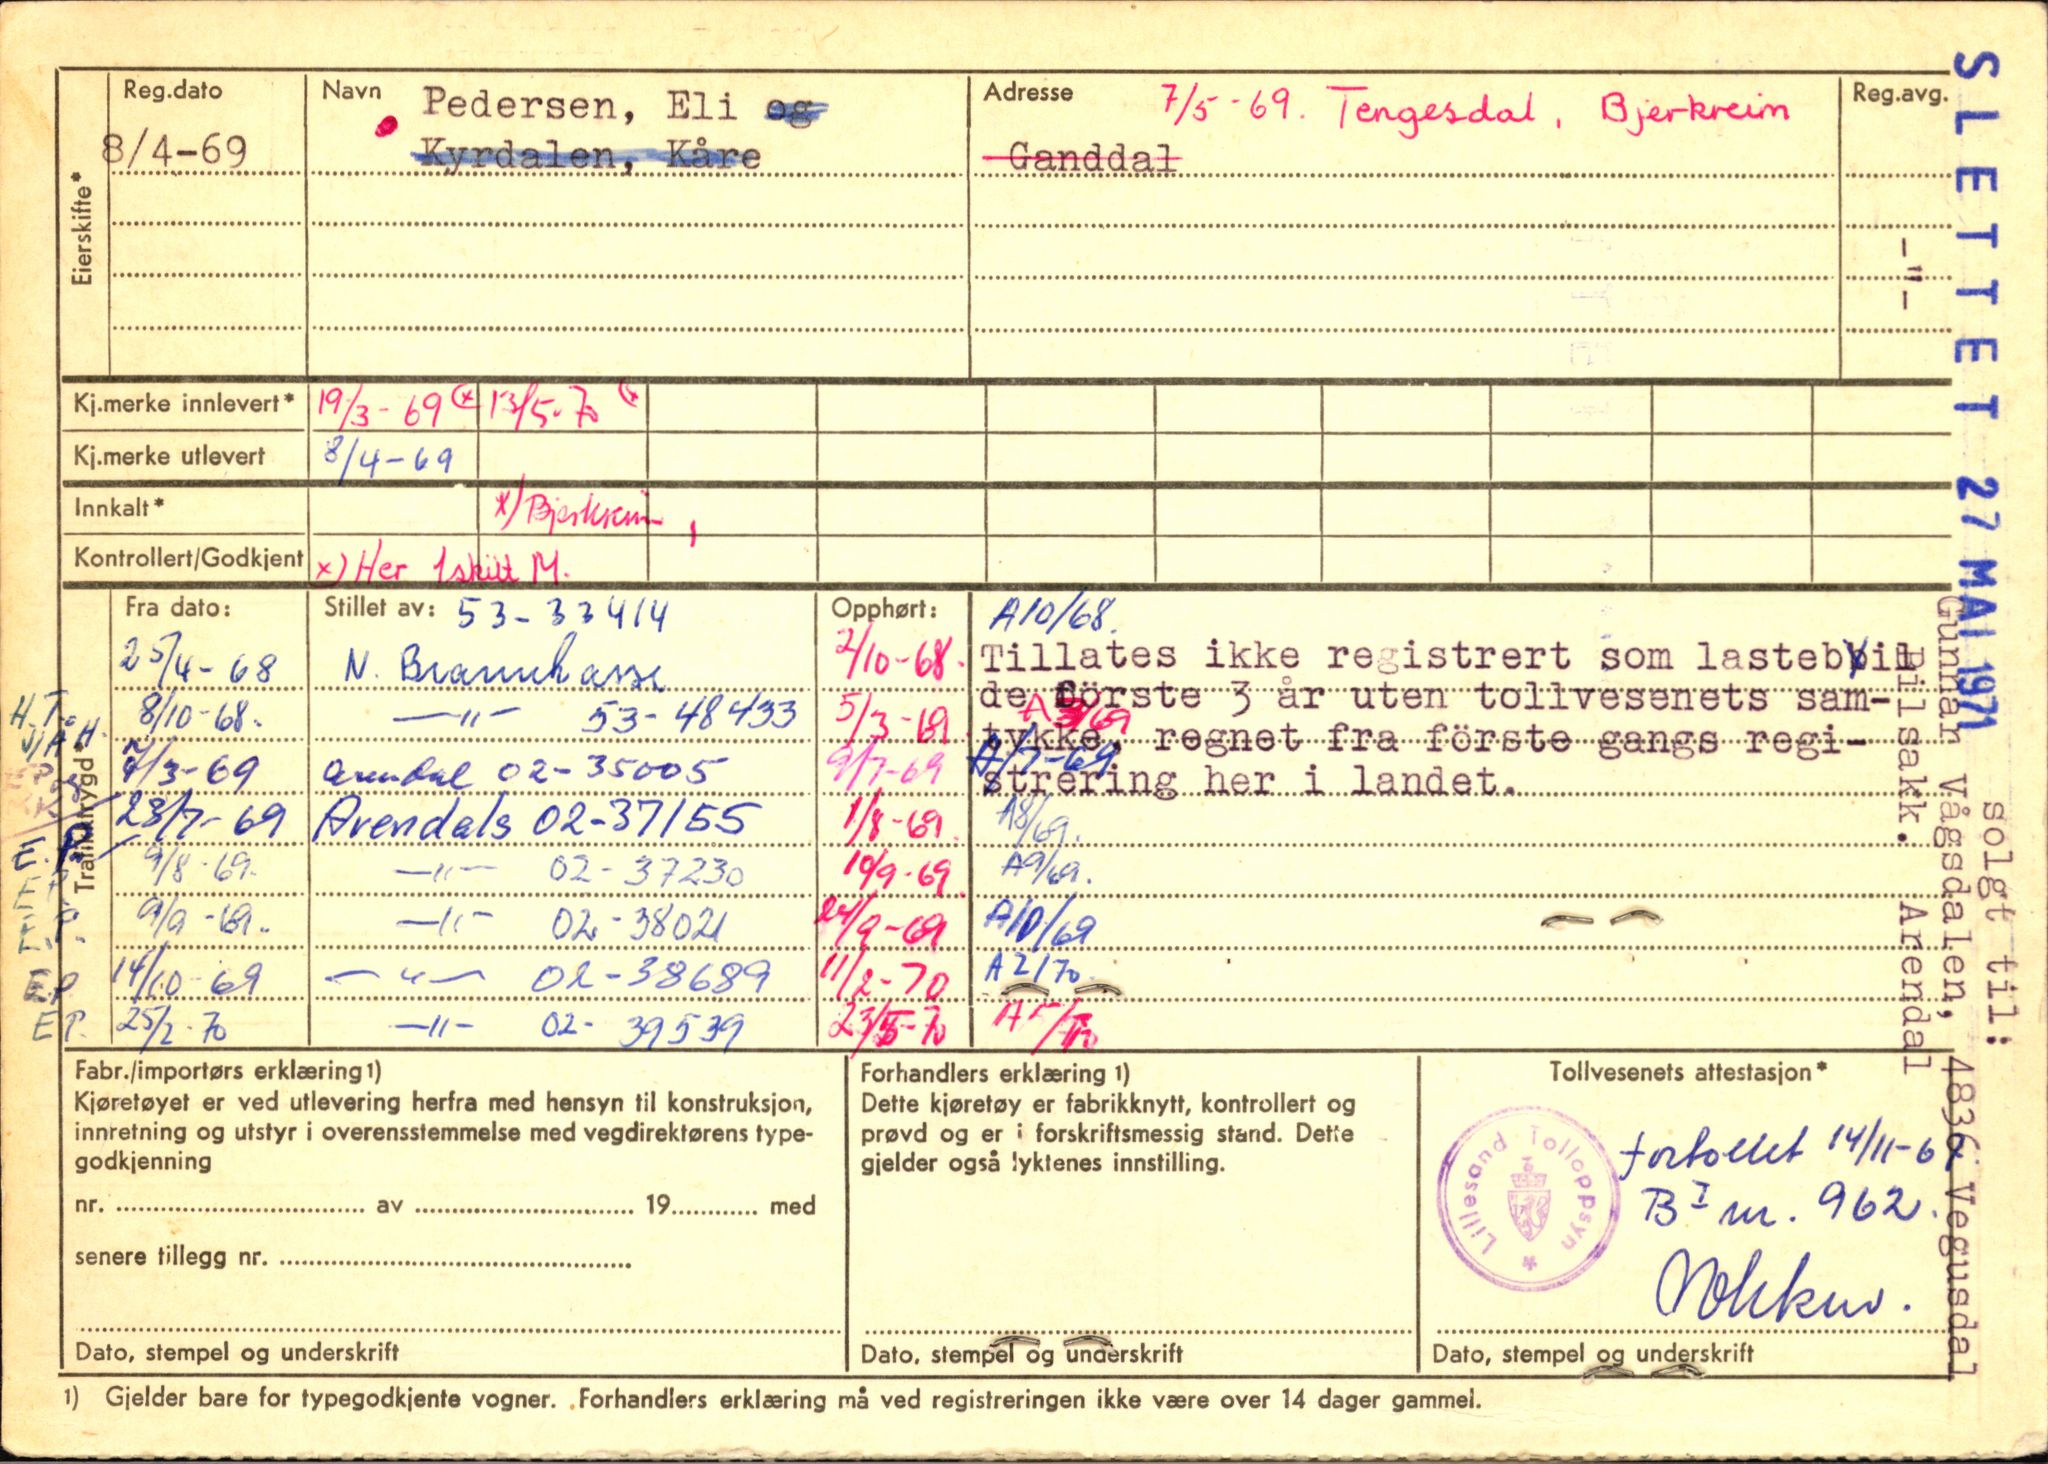 Reg.dato
Navn
Adresse
Reg.avg.
8/4-69
Pedersen, Eli og
Kyrdalen, Kåre
7/5-69. Tengesdal, Bjerkreim
Ganddal
-"-
Eierskifte*
Kj.merke innlevert*
19/3-69 (x
13/5-70 (x
Kj.merke utlevert
8/4-69
Innkalt*
x) Bjerkreim
Kontrollert/Godkjent
x) Her 1 skilt M.
Trafikktrygd*
Fra dato:
Stillet av: 53-33414
Opphørt:
A10/68.
25/4-68
2/10-68.
H.T.
8/10-68.
—"— 53-48433
5/3-69
A3/69
7/3-69
Arendal 02-35005
9/7-69
A/7-69
23/7-69
Arendals 02-37155
1/8-69.
A8/69.
E.P.
9/8-69.
—"— 02-37230
10/9-69
A9/69.
E.P.
9/9-69.
—"— 02-38021
24/9-69
A10/69
E.P.
14/10-69
—"— 02-38689
11/2-70
A2/70.
E.P.
25/2-70
—"— 02-39539
23/5-70
A5/70
Tillates ikke registrert som lastebil
de förste 3 år uten tollvesenets sam-
tykke, regnet fra förste gangs regi-
strering her i landet.
SLETTET 27 MAI 1971
solgt til:
Gunnar Vågsdalen, 4836 Vegusdal
Pilsakk. Arendal
Fabr./importørs erklæring 1)
Kjøretøyet er ved utlevering herfra med hensyn til konstruksjon,
innretning og utstyr i overensstemmelse med vegdirektørens type-
godkjenning
nr. ........ av ........ 19........ med
senere tillegg nr. ........
Dato, stempel og underskrift
Forhandlers erklæring 1)
Dette kjøretøy er fabrikknytt, kontrollert og
prøvd og er i forskriftsmessig stand. Dette
gjelder også lyktenes innstilling.
Dato, stempel og underskrift
Tollvesenets attestasjon*
Lillesand Tolloppsyn
fortollet 14/11-67.
B I nr. 962.
Dato, stempel og underskrift
1) Gjelder bare for typegodkjente vogner. Forhandlers erklæring må ved registreringen ikke være over 14 dager gammel.